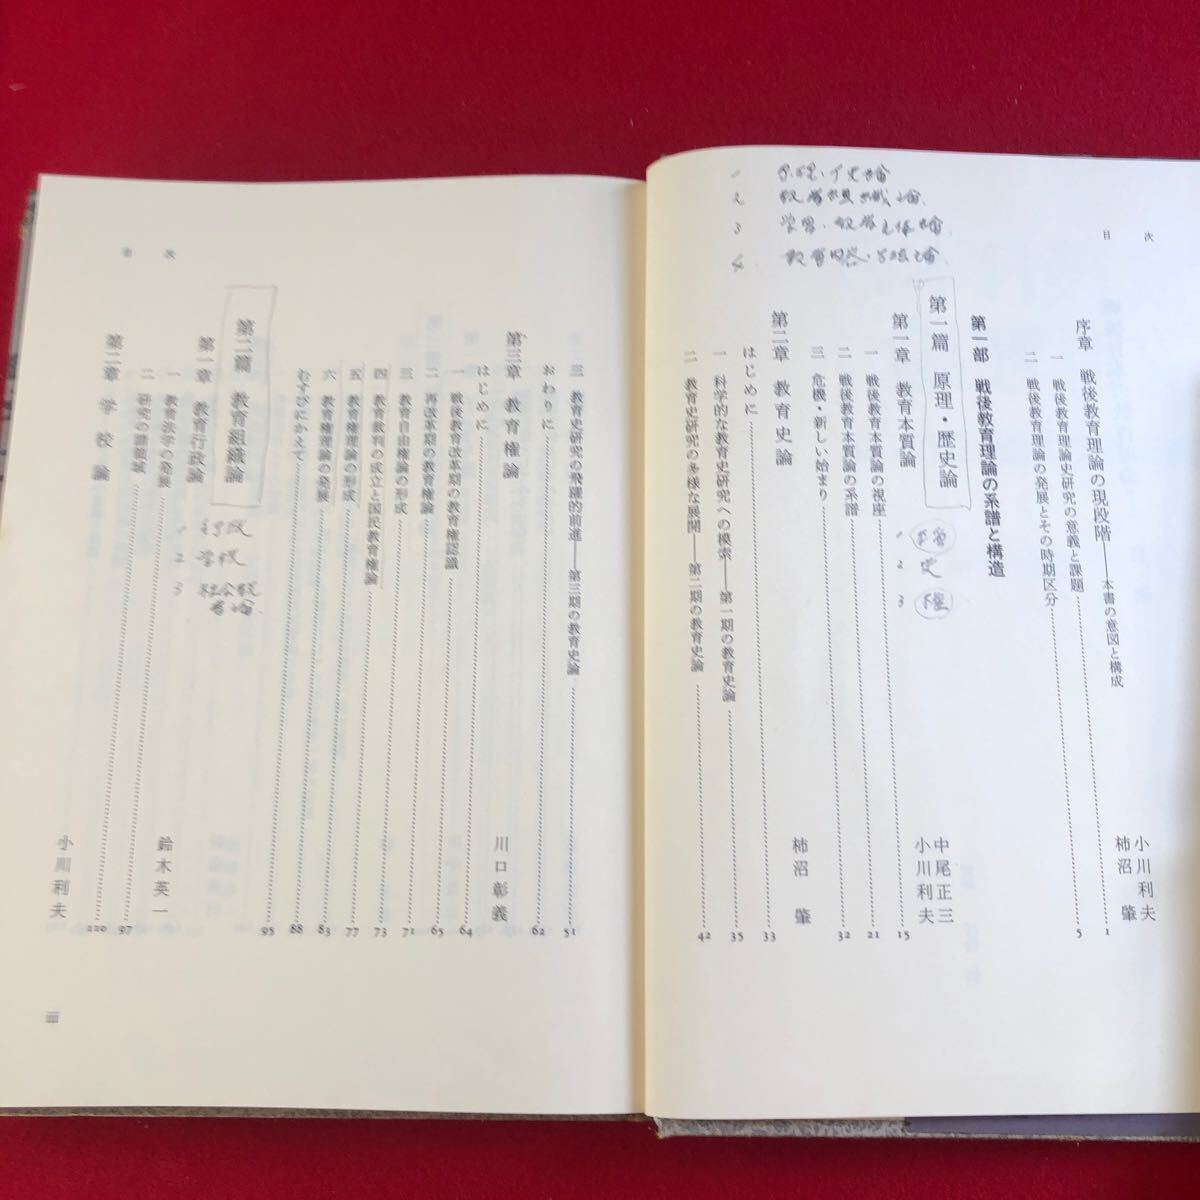 目次
序章 戦後教育理論の現段階――本書の意図と構成……小川利夫 柿沼肇……1
一 戦後教育理論史研究の意義と課題……5
二 戦後教育理論の発展とその時期区分
第一部 戦後教育理論の系譜と構造
第一篇 原理・歴史論
第一章 教育本質論……中尾正三 小川利夫……15
一 戦後教育本質論の視座……21
二 戦後教育本質論の系譜……32
三 危機・新しい始まり
第二章 教育史論……柿沼肇……33
はじめに
一 科学的な教育史研究への模索――第一期の教育史論……35
二 教育史研究の多様な展開――第二期の教育史論……42
1
2 教育組織論
3 学習・教育主体論
4 教育内容・方法論
1
2 史
3
目次
三 教育史研究の飛躍的前進――第三期の教育史論……51
おわりに……62
第三章 教育権論……川口彰義
はじめに……64
一 戦後教育改革期の教育権認識……65
二 再改革期の教育権論……71
三 教育自由権論の形成……73
四 教育裁判の成立と国民教育権論……77
五 教育権理論の形成……83
六 教育権理論の発展……88
むすびにかえて……95
第二篇 教育組織論
第一章 教育行政論……鈴木英一
一 教育法学の発展……97
二 研究の諸領域……120
第二章 学校論……小川利夫
1 行政
2 学校
3 社会教育論
iii